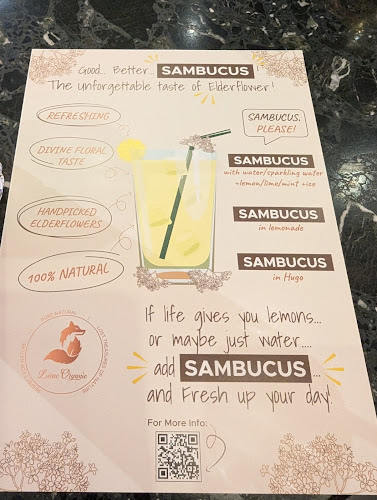 Good... Better... SAMBUCUS!
The unforgettable taste of Elderflower!
REFRESHING
SAMBUCUS, PLEASE!
DIVINE FLORAL TASTE
SAMBUCUS
with water/sparkling water
+lemon/lime/mint +ice
HANDPICKED ELDERFLOWERS
SAMBUCUS
in lemonade
100% NATURAL
SAMBUCUS
in Hugo
If life gives you lemons...
or maybe just water....
add SAMBUCUS...
and Fresh up your day!
PURE NATURAL
LOST TREASURES OF NATURE
Organic
For More Info: